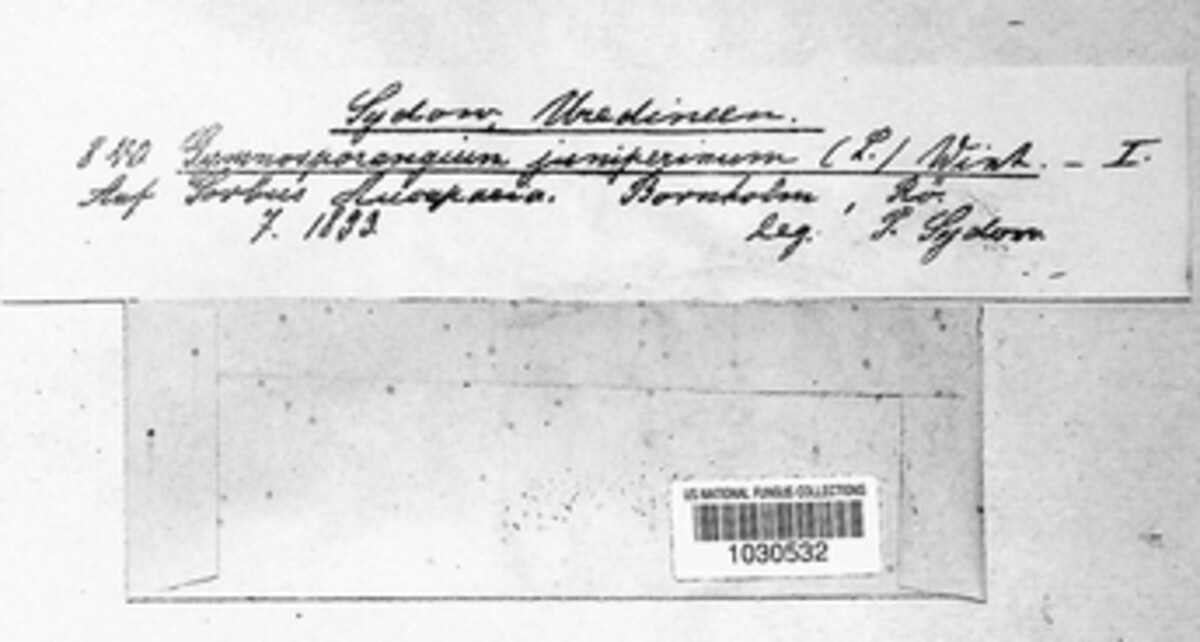 Sydow, Uredineen.
840 Gymnosporangium juniperinum (L.) Wint. — I.
Auf Sorbus Aucuparia. Bornholm,
7. 1893 leg. P. Sydow.
US NATIONAL FUNGUS COLLECTIONS
1030532